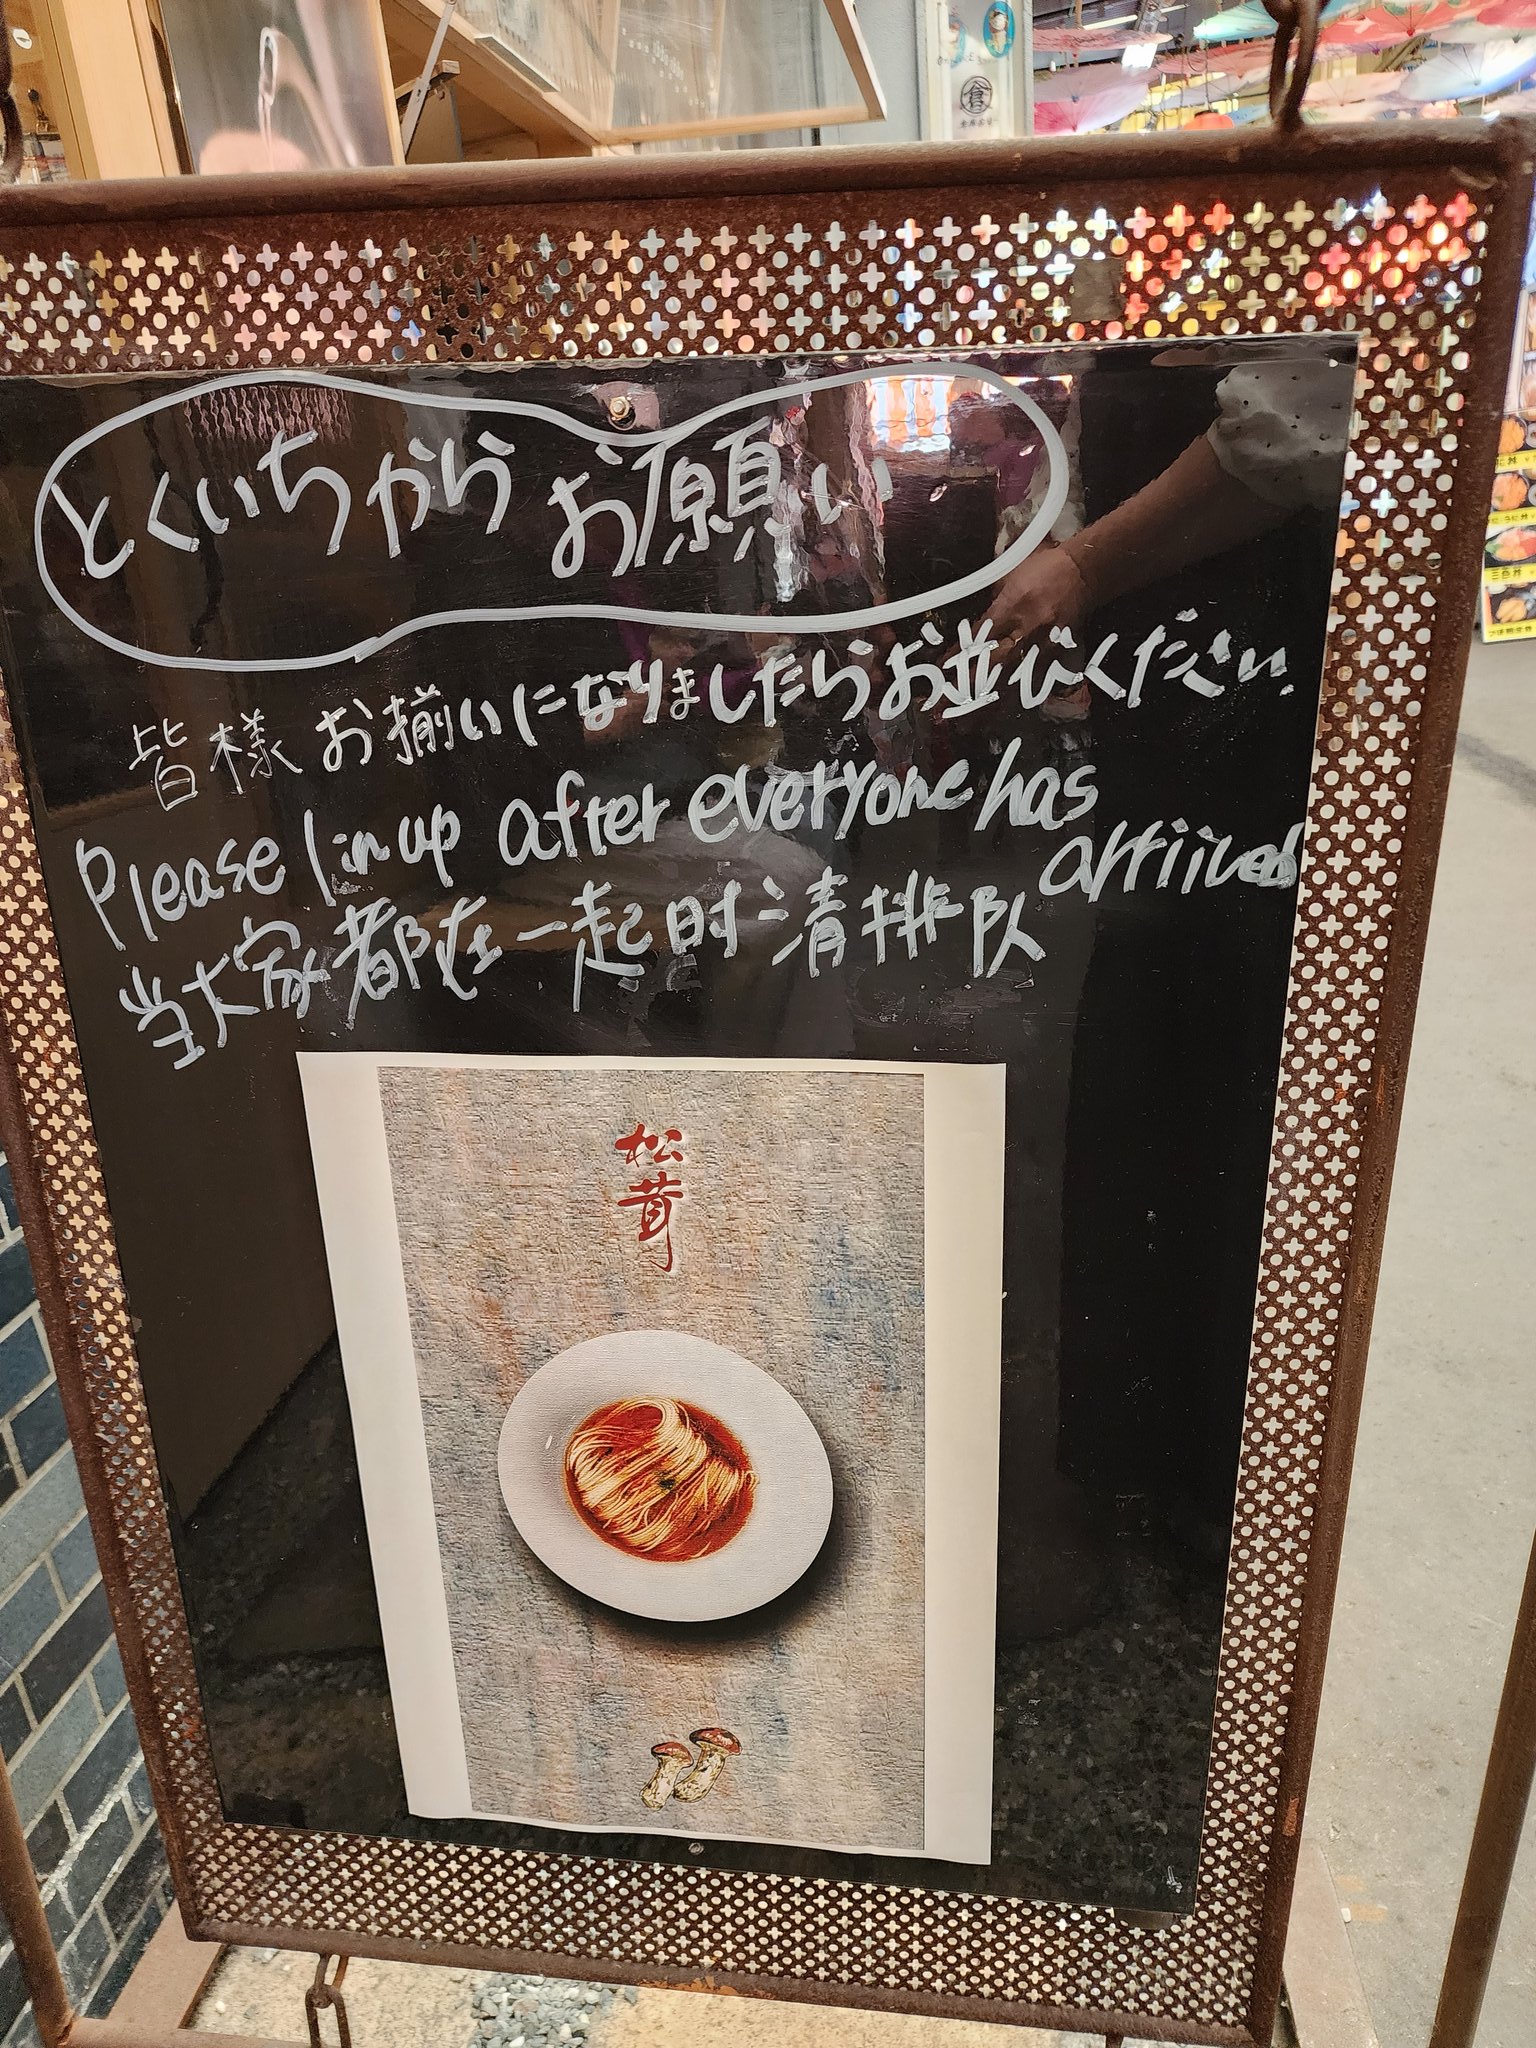 とくいちからお願い
皆様お揃いになりましたらお並びください
Please lin up after everyone has
arriived
当大家都在一起时清排队
松茸
倉
三色丼